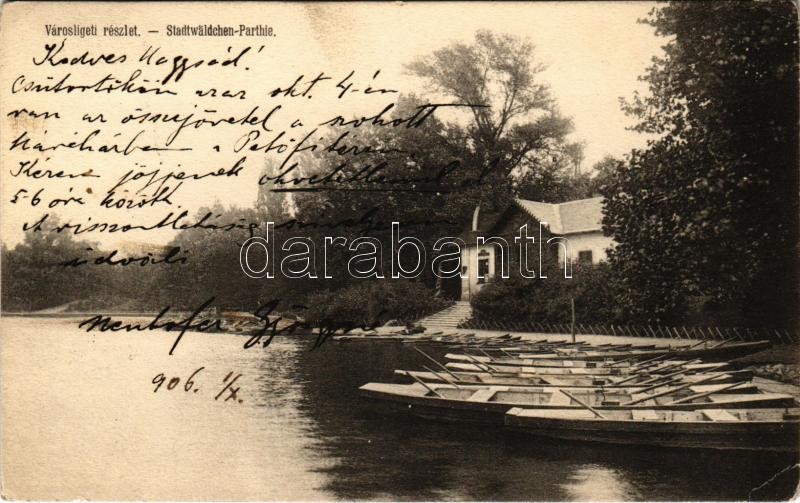 Városligeti részlet. — Stadtwäldchen-Parthie.
Kedves Nagysád!
Csütörtökön azaz okt. 4-én
van az összejövetel a szokott
Kávéházban a Petőfi téren
Kérem jöjjenek okvetetlenül el
5-6 óra között.
A viszontlátásig szívélyesen
üdvözli
Györgyné
906. 1/X.
darabanth